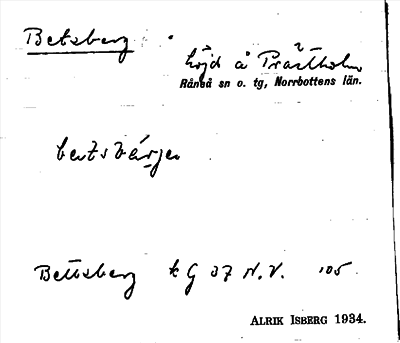 Betsberg
höjd å Prästholm
Råneå sn o. tg, Norrbottens län.
Bettsberg kG 37 N.V. 105
ALRIK ISBERG 1934.